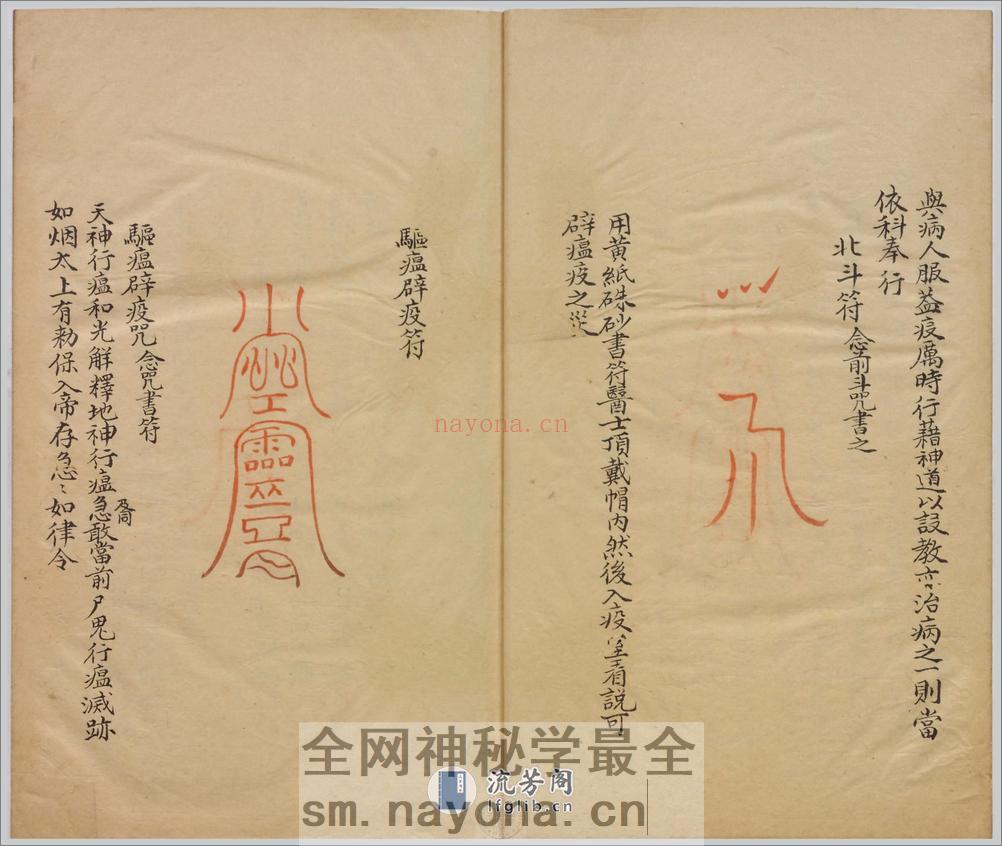 與病人服葢疫厲時行藉神道以設教亦治病之一則當
依科奉行
北斗符 念前斗咒書之
用黃紙硃砂書符醫士頂戴帽內然後入疫室看說可
辟瘟疫之災
驅瘟辟疫符
驅瘟辟疫咒 念咒書符
天神行瘟和光解釋地神行瘟急敢當前尸鬼行瘟滅跡
如烟太上有勅保入帝存急〻如律令
nayona.cn
全网神秘学最全
sm.nayona.cn
流芳阁
lfglib.cn